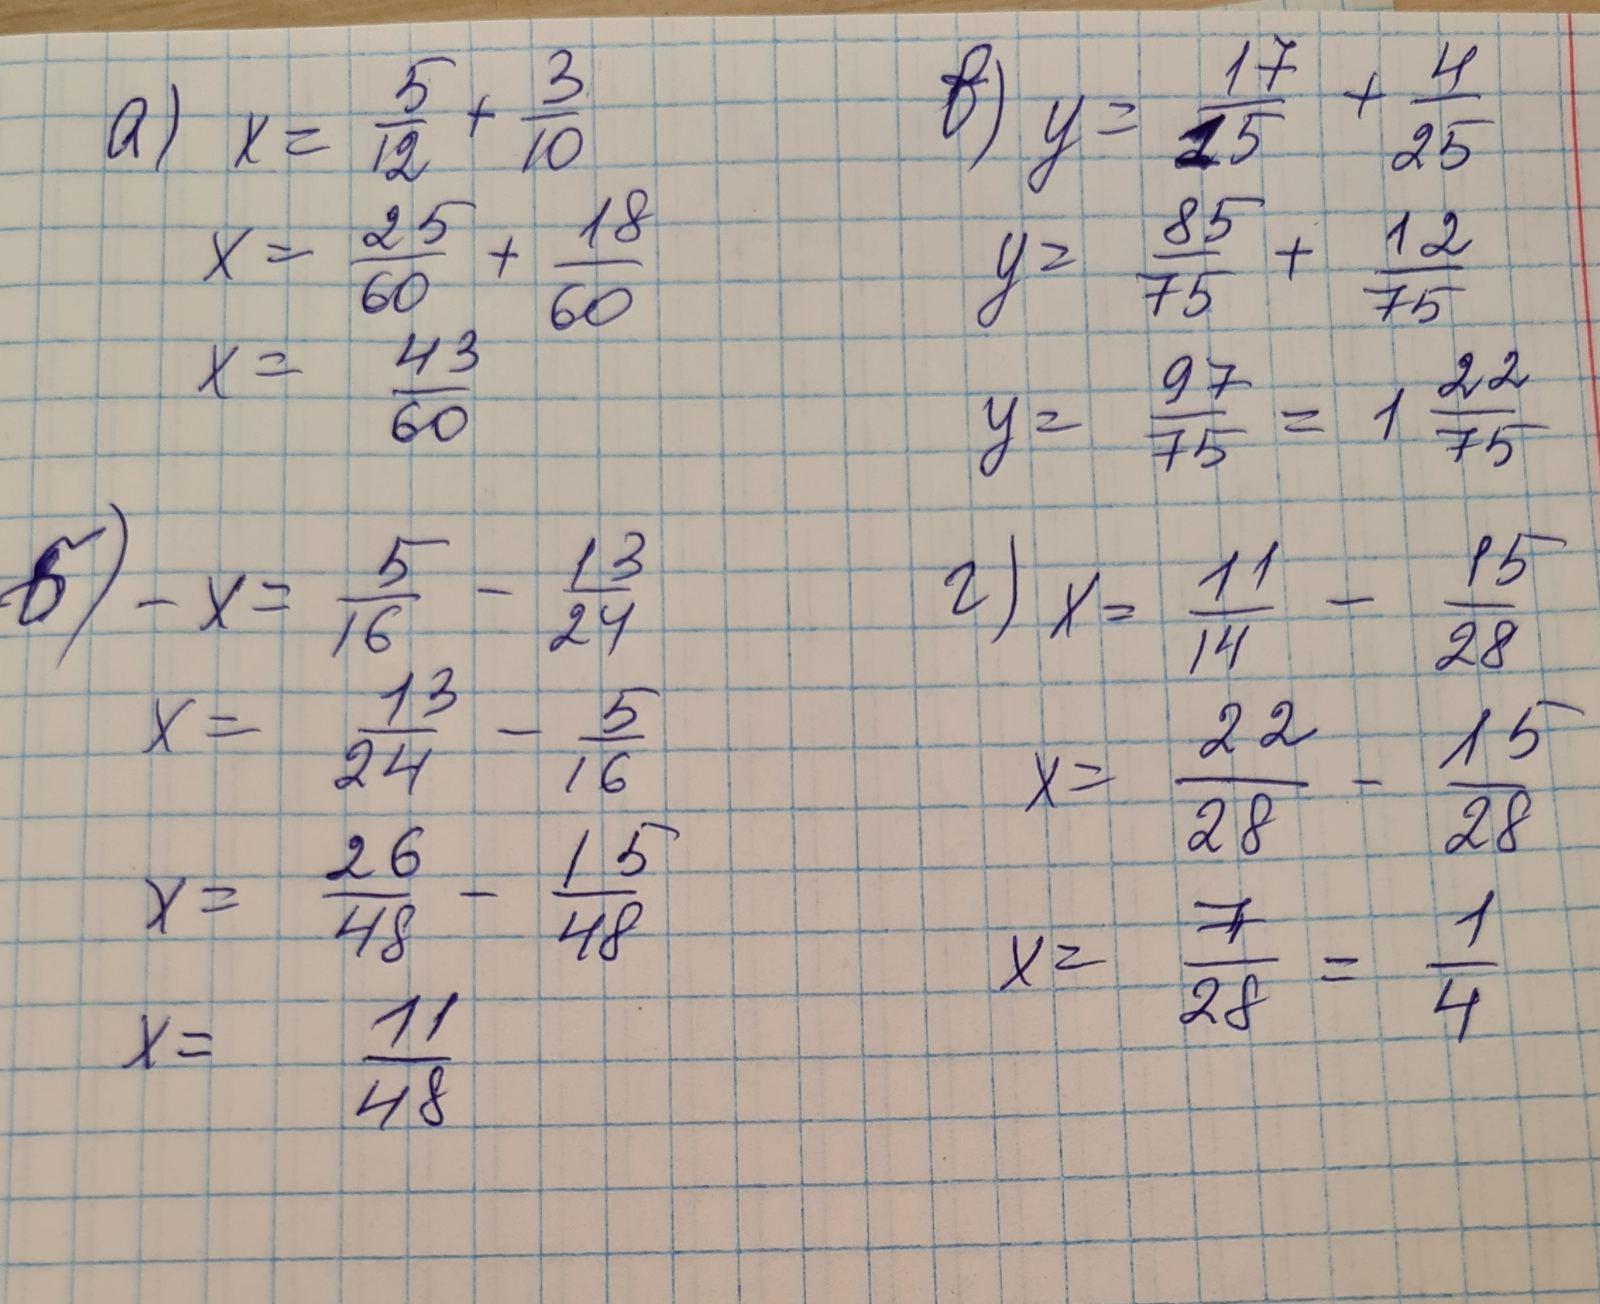 а) x = 5/12 + 3/10
x = 25/60 + 18/60
x = 43/60
б) - x = 5/16 - 13/24
x = 13/24 - 5/16
x = 26/48 - 15/48
x = 11/48
в) y = 17/15 + 4/25
y = 85/75 + 12/75
y = 97/75 = 1 22/75
г) x = 11/14 - 15/28
x = 22/28 - 15/28
x = 7/28 = 1/4